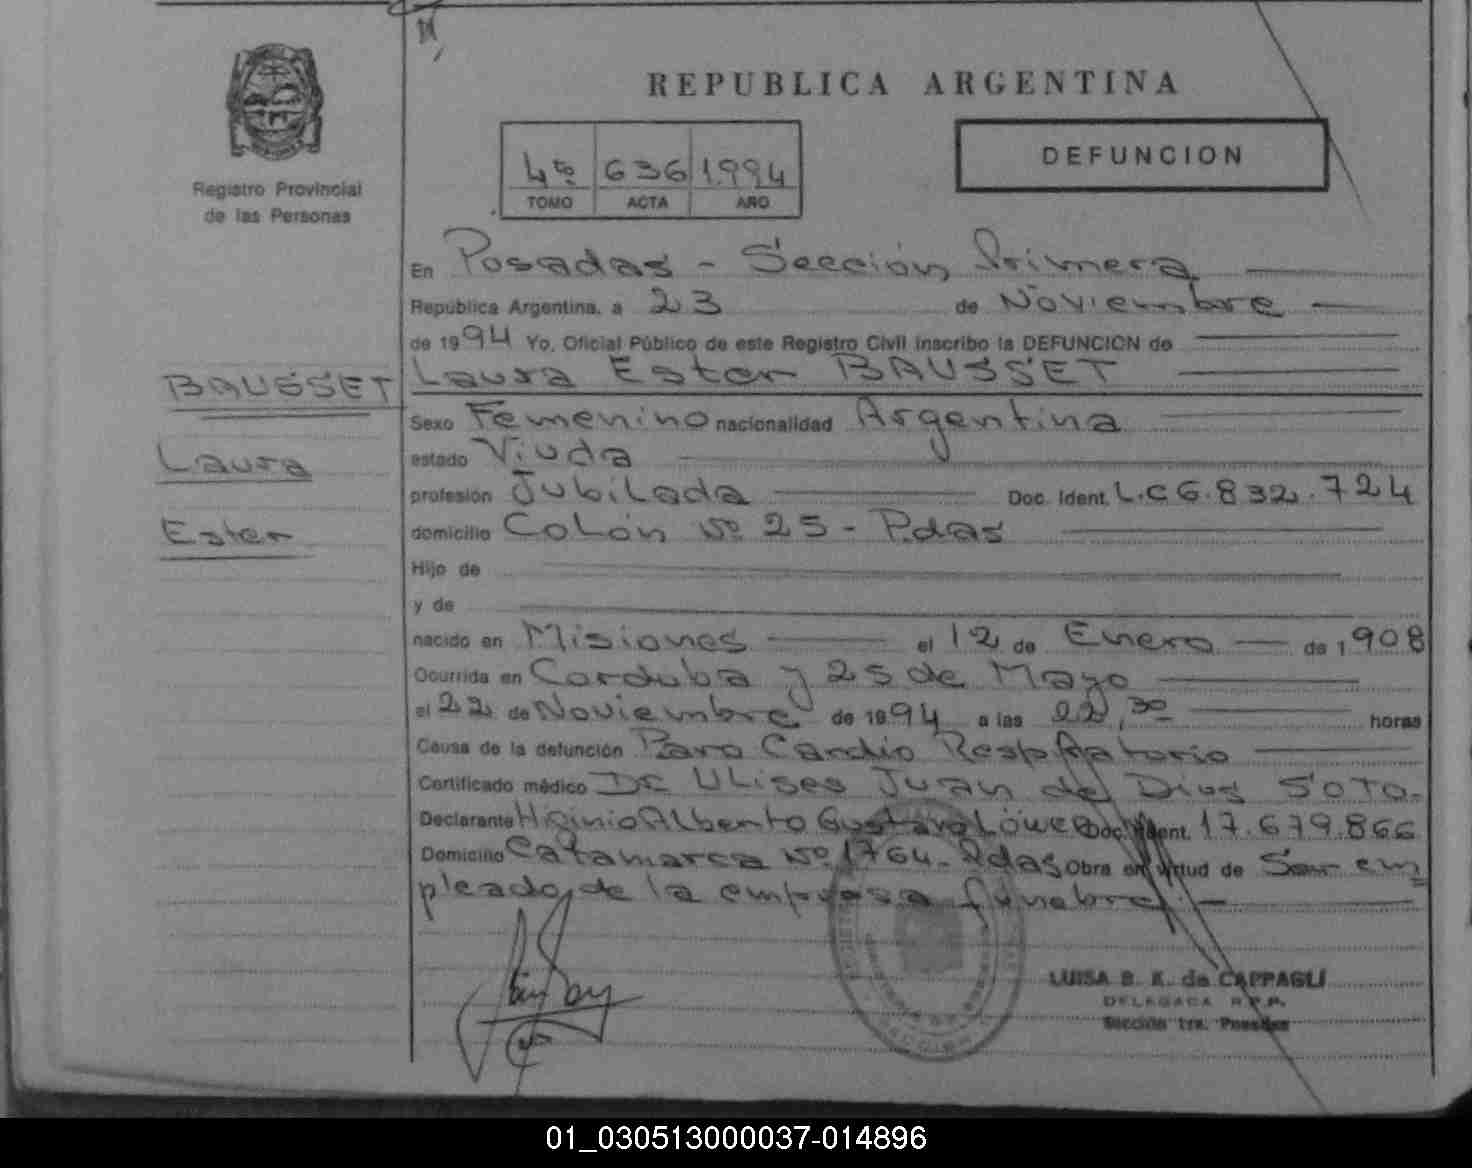 REPUBLICA ARGENTINA
DEFUNCION
4to 636 1.994
TOMO ACTA AÑO
Registro Provincial
de las Personas
En Posadas - Sección Primera
República Argentina, a 23 de Noviembre
de 1994 Yo, Oficial Público de este Registro Civil inscribo la DEFUNCION de
BAUSSET
Laura Ester BAUSSET
Sexo Femenino nacionalidad Argentina
Laura
estado Viuda
profesión Jubilada Doc. Ident. L.C 6.832.724
Ester
domicilio Colón Nº 25 - Pdas
Hijo de
y de
nacido en Misiones el 12 de Enero de 1908
Ocurrida en Cordoba y 25 de Mayo
el 22 de Noviembre de 1994 a las 22,30 horas
Causa de la defunción Paro Cardio Respiratorio
Certificado médico Dr Ulises Juan de Dios SOTO.-
Declarante Higinio Alberto Gustavo Doc. Ident. 17.679.866
Domicilio Catamarca Nº 1764 - Pdas Obra en virtud de Ser em
pleado de la empresa fúnebre.-
LUISA B. K. de CAPPAGLI
DELEGADA R.P.P.
Sección 1ra. Posadas
01_030513000037-014896